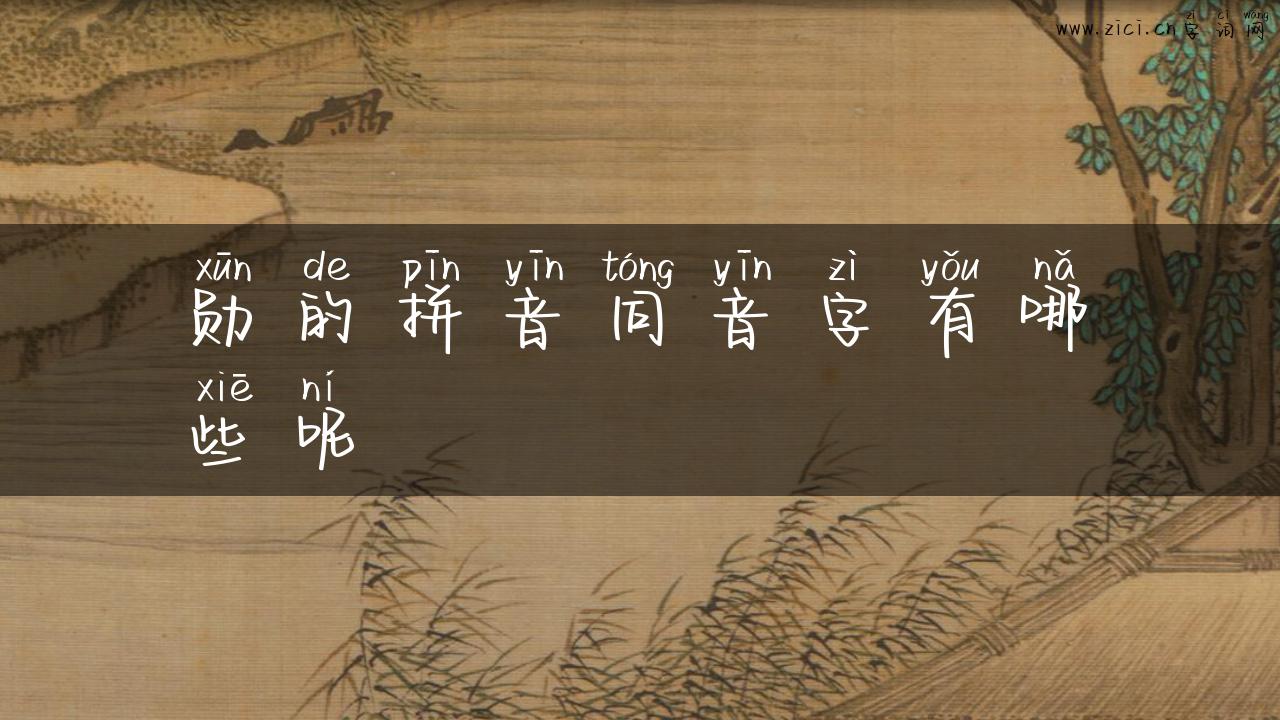 www.zici.cn zì cí wǎng
字词网
xūn de pīn yīn tóng yīn zì yǒu nǎ
勋的拼音同音字有哪
xiē ní
些呢